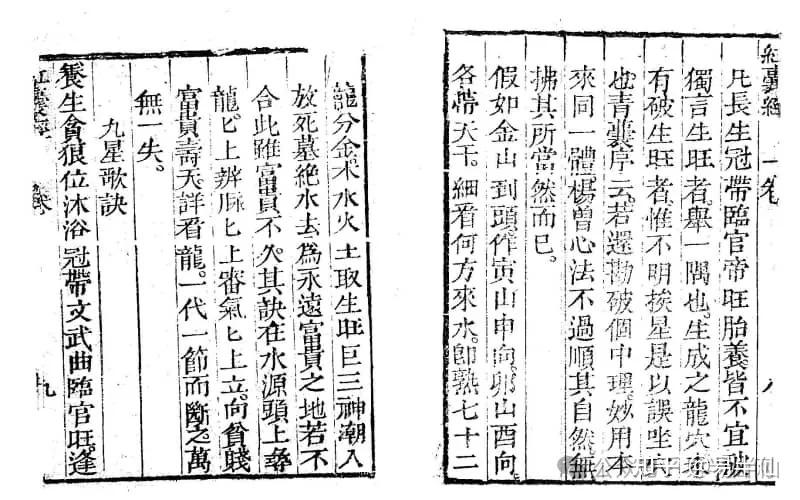 紅囊經 一卷 八
凡長生冠帶臨官帝旺胎養皆不宜破
獨言生旺者。舉一隅也。生成之龍穴
有破生旺者。惟不明挨星是以誤坐穴
也青囊序云。若還勘破個中理。妙用本
來同一體。楊曾心法不過順其自然。無
拂其所當然而已。
假如金山到頭。作寅山申向。卯山酉向。
各帶天干。細看何方來水。卽熟七十二
龍分金。木水火土取生旺巨三神潮入
放死墓絕水去。爲永遠富貴之地若不
合此雖富貴不久。其訣在水源頭上尋
龍匕上辨脈匕上審氣匕上立。向貧賤
富貴壽夭。詳看龍。一代一節而斷之。萬
無一失。
九星歌訣
養生貪狼位沐浴冠帶文武曲臨官旺。逢
九